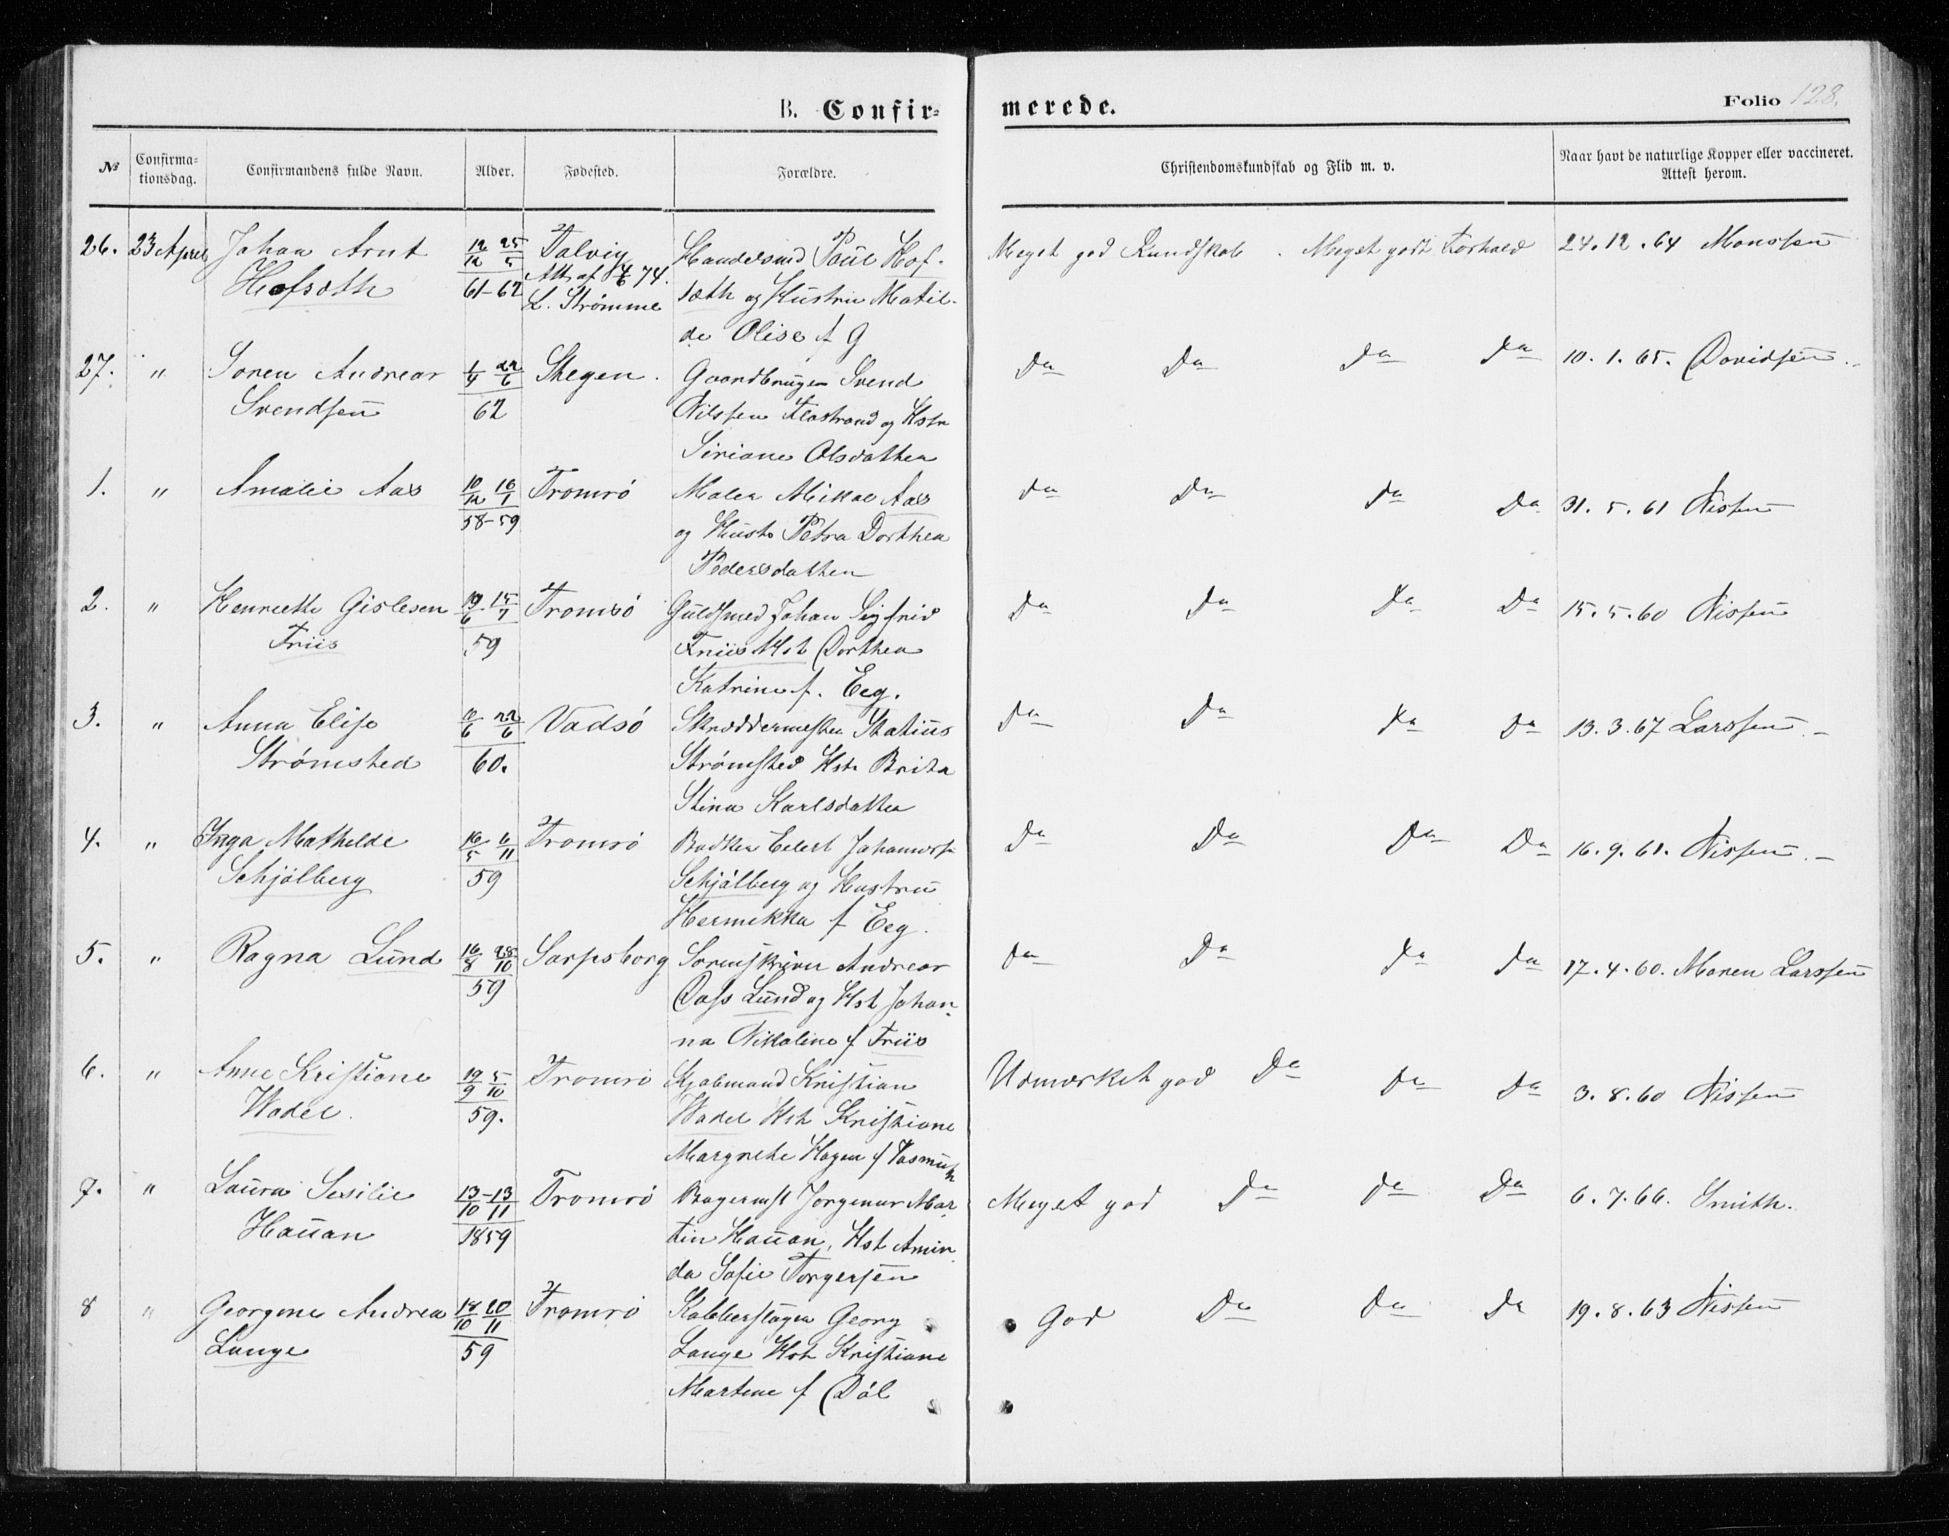 B. Confir-
merede.
Folio 128.
№ Confirma-tionsdag. Confirmandens fulde Navn. Alder. Fødested. Forældre. Christendomskundskab og Flid m. v. Naar havt de naturlige Kopper eller vaccineret. Attest herom.
26. 23 April Johan Arnt 12/12 25/5 Talvig Handelsmd Paul Hof- Meget god Kundskab . Meget godt Forhold 24.12.64 Monssen
Hofsæth 61-62 Att. af 74. sæth og Hustru Matil-
L. Strømme de Olise f G
27. " Søren Andreas 1/4 22/6 Stegen. Gaardbruger Svend Do Do Do Do 10.1.65. Davidsen
Svendsen 62 Nilssen Flostrand og Hstr
Siriane Olsdatter
1. " Amalie Aas 10/12 16/1 Tromsø Maler Mikal Aas Do Do Do Do 31.5.61 Nissen
58-59 og Hustr Petra Dorthea
Pedersdatter
2. " Henriette Gislesen 19/6 15/7 Tromsø Guldsmed Johan Sigfrid Do Do Do Do 15.5.60 Nissen
Friis 59 Friis Hst Dorthea
Katrine f. Eeg.
3. " Anna Elise 22/6 Vadsø Skræddermester Statius Do Do Do Do 13.3.67 Larssen
Strømsted 60. Strømsted Hstr Brita
Stina Karlsdatter
4. " Inga Mathilde 16/5 6/11 Tromsø Bødker Eilert Do Do Do Do 16.9.61. Nissen
Schjølberg 59 Schjølberg og Hustru
Hermikka f Eeg.
5. " Ragna Lund 16/8 28/10 Sarpsborg Sorenskriver Andreas Do Do Do Do 17.4.60. Maren Larssen
59 Dass Lund og Hst Johan-
na Nikoline f Friis
6. " Anne Kristiane 19/9 5/10 Tromsø Kjøbmand Kristian Udmærket god Do Do Do 3.8.60 Nissen
Wadel. 59. Wadel Hst Kristiane
Margrete Hagen f Rasmuss
7. " Laura Sesilie 13/10-13/11 Tromsø Bagermst Jørgenus Mar- Meget god Do Do Do 6.7.66. Smith.
Hauan 1859 tin Hauan, Hst Amin-
da Sofie Torgersen
8 " Georgine Andrea 18/10 20/11 Tromsø Kobberslager Georg God Do Do Do 19.8.63 Nissen
Lange 59 Lange Hst Kristiane
Martine f Døl